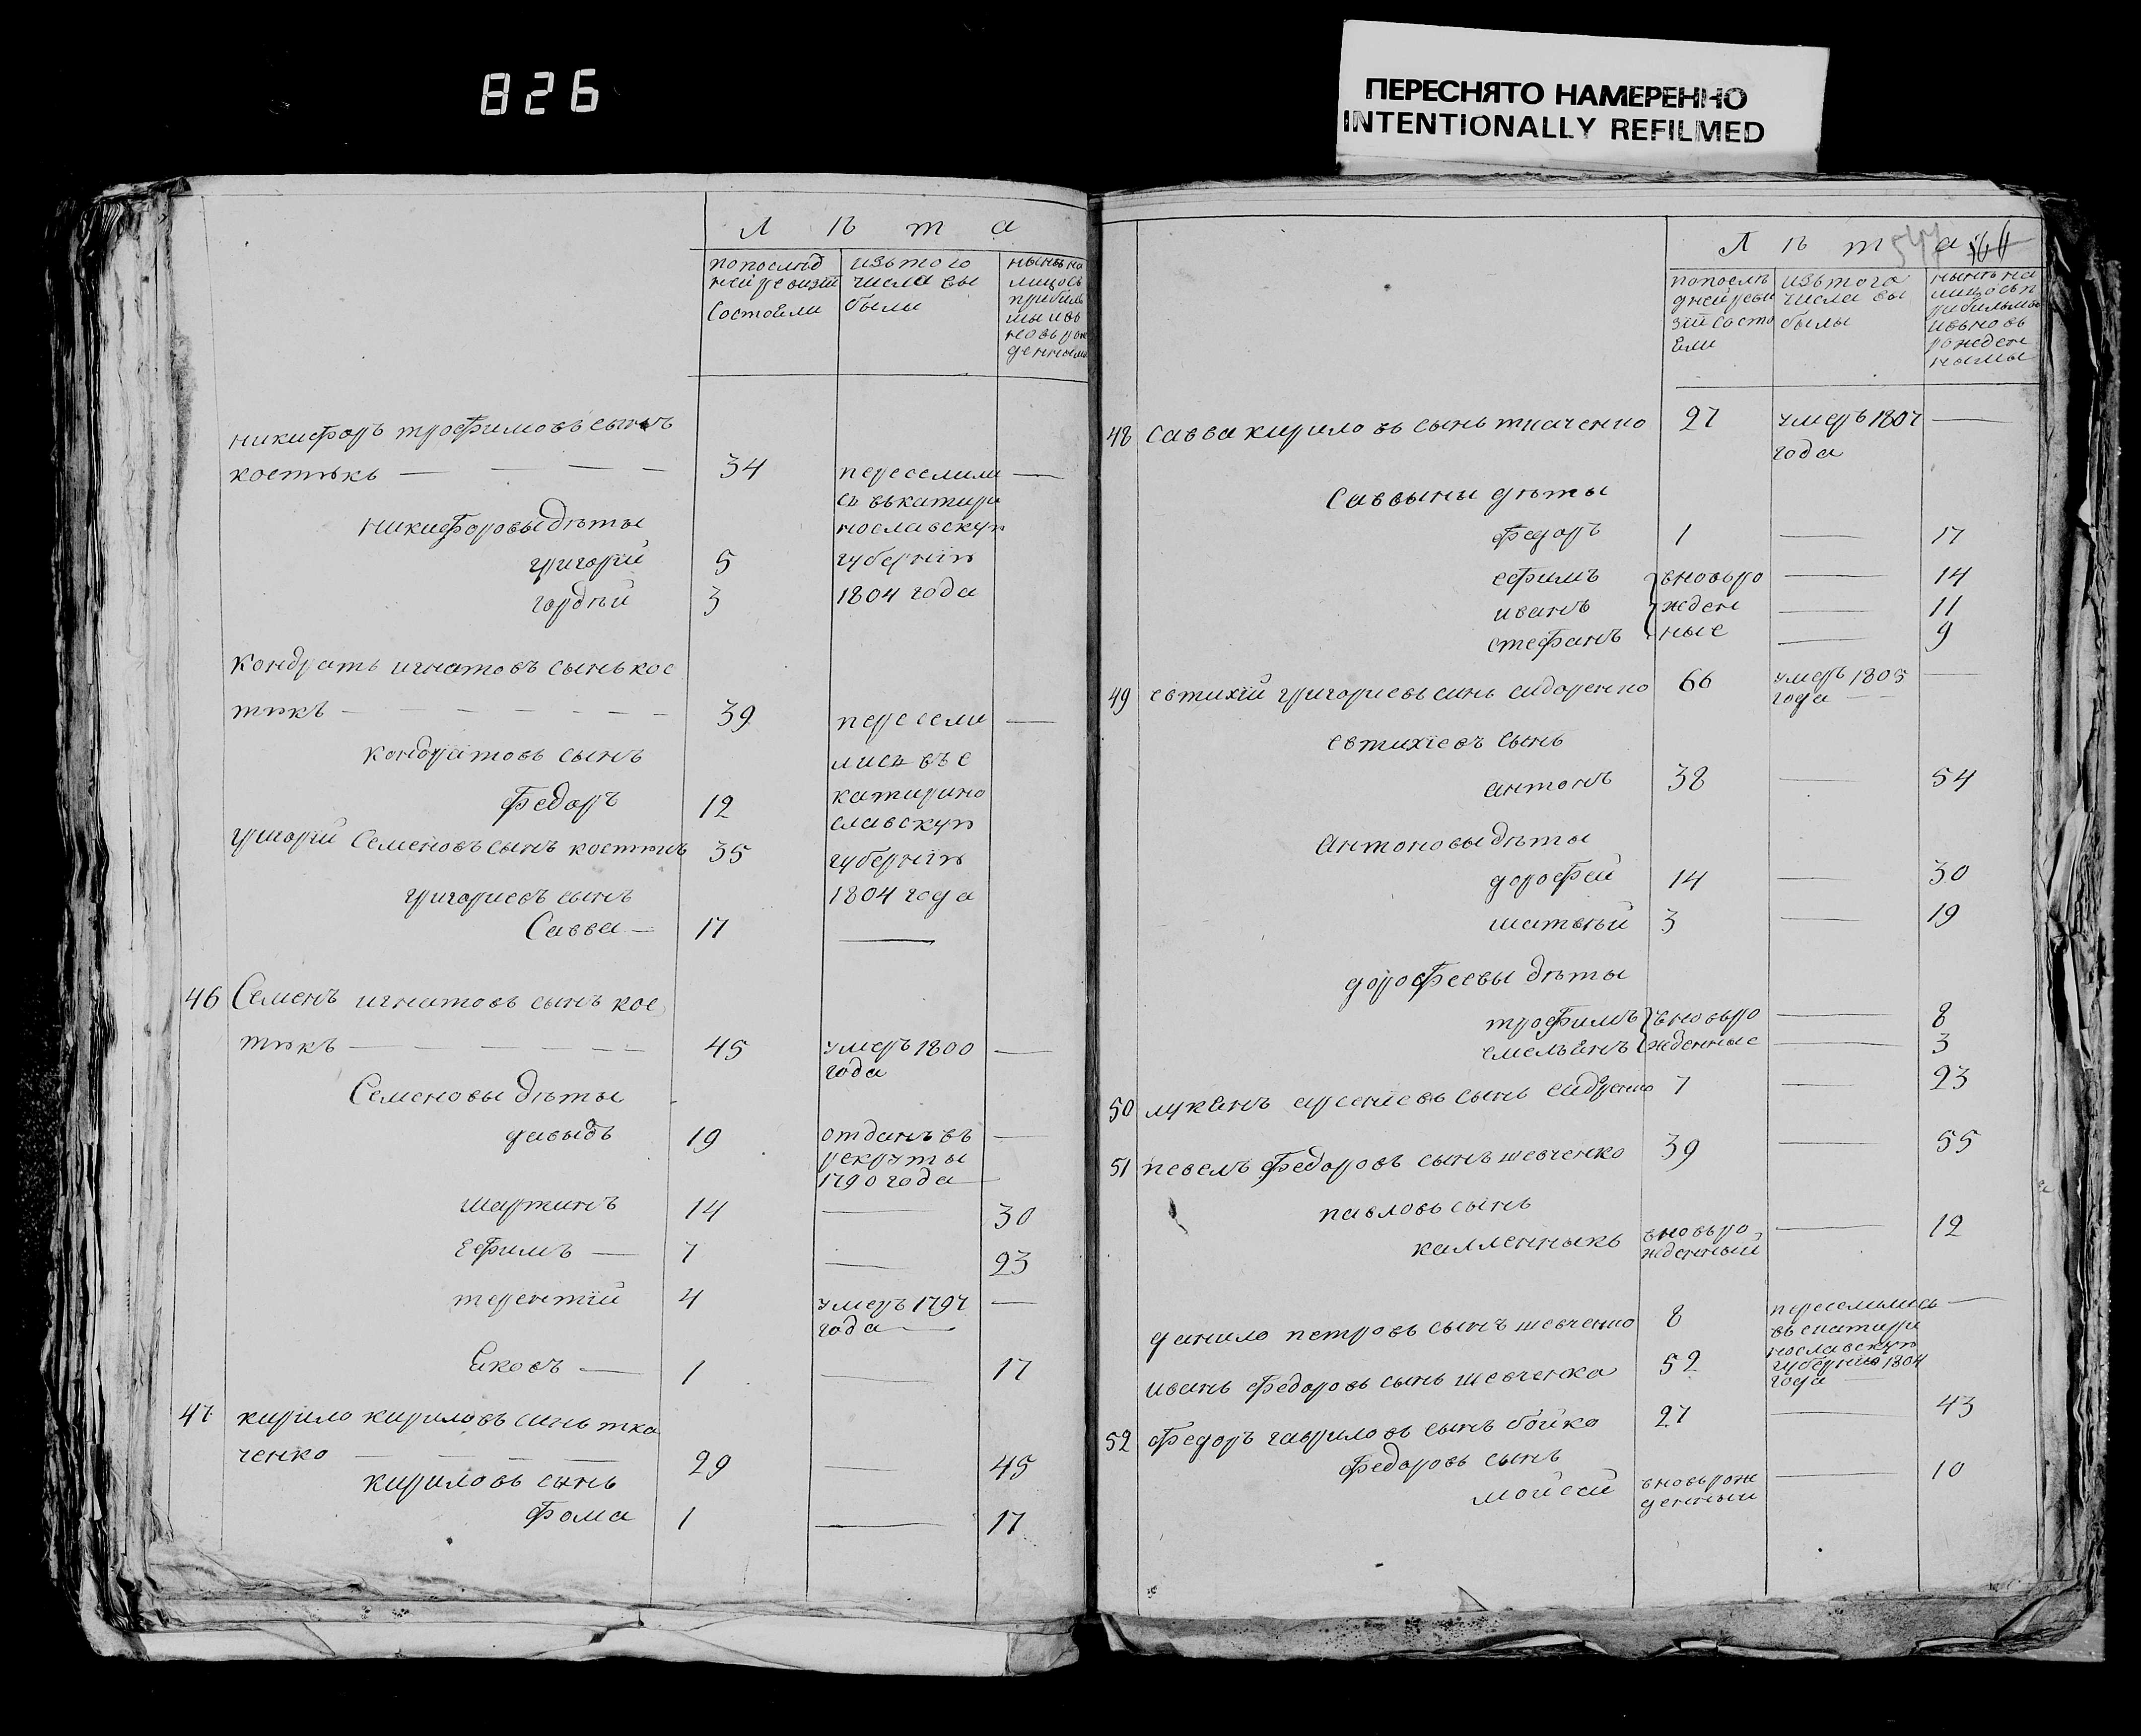 826
ПЕРЕСНЯТО НАМЕРЕННО
INTENTIONALLY REFILMED
Л ѣ т а
попослѣд
ней ревизіи
состояли
изътого
числа вы
были
нынѣ на
лицо съ
прибыль
мы и въ
новь рож
денными
никифоръ трофимовъ сынъ
костѣкъ — — — — 34 переселили —
сь въкатири
никифоровы дѣты нославскую
григорій 5 губернію
гордѣй 3 1804 года
кондратъ игнатовъ сынъ кос
тѣкъ — — — — — 39 пересели —
кондратовъ сынъ лись въ е
федоръ 12 катирино
славскую
григорій семеновъ сынъ костюкъ 35 губернію
григориевъ сынъ 1804 года
Савва — 17 —
46 Семенъ игнатовъ сынъ кос
тюкъ — — — — — 45 умеръ 1800 —
года
Семеновы дѣты
давыдъ 19 отданъ въ —
рекруты
1790 года
мартинъ 14 — 30
Ефимъ — 7 — 23
терентій 4 умеръ 1797 —
года —
Яковъ — 1 — 17
47 кирило кириловъ синъ тка
ченко — — — 29 — 45
кириловъ сынъ
фома 1 — 17
Л ѣ т а
попослѣ
дней реви
зіи состо
яли
изътого
числа вы
были
нынѣ на
лицо съ п
рибылыми
и вьновь
рожден
ными
48 Савва кирило въ сынъ ткаченко 27 умеръ 1807 —
года
Саввыны дѣты
федоръ 1 — 17
ефимъ вновьро — 14
иванъ жден — 11
стефанъ ные — 9
49 евтихій григориевъ синъ сидоренко 66 умеръ 1805 —
года —
евтихіевъ сынъ
антонъ 38 — 54
Антоновы дѣты
дорофей 14 — 30
матвѣй 3 — 19
дорофеевы дѣты
трофимъ вновьро — 8
емельянъ жденные — 3
50 лукянъ арсеніевъ сынъ сидренко 7 — 23
51 павелъ федоровъ сынъ шевченко 39 — 55
павловъ сынъ
калленныкъ вновьро — 12
жденный
данило петровъ сынъ шевченко 8 переселились —
въ екатири
нославскую
иванъ федоровъ сынъ шевченка 52 губернію 1804
года
52 федоръ гавриловъ сынъ бойко 27 — 43
федоровъ сынъ
мойсей вновьрож — 10
денный